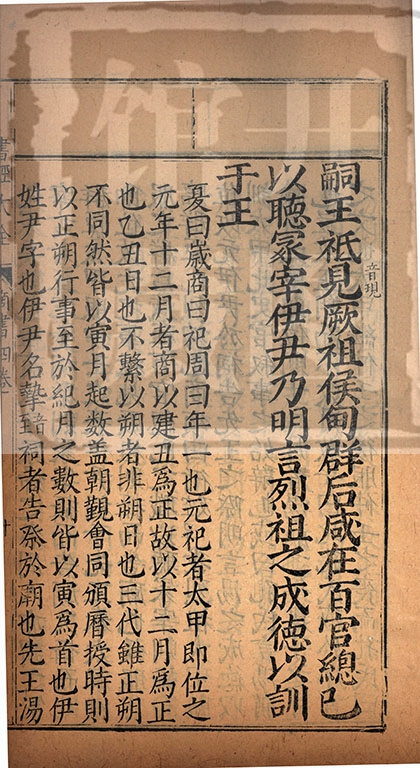 嗣王祗見厥祖侯甸群后咸在百官總已
音現
以聽冢宰伊尹乃明言烈祖之成德以訓
于王
夏曰嵗商曰祀周曰年一也元祀者太甲即位之
元年十二月者商以建丑為正故以十二月為正
也乙丑日也不繫以朔者非朔日也三代雖正朔
不同然皆以寅月起數盖朝覲會同頒曆授時則
以正朔行事至於紀月之數則皆以寅為首也伊
姓尹字也伊尹名摯祠者告祭於廟也先王湯
書經大全
商書四卷